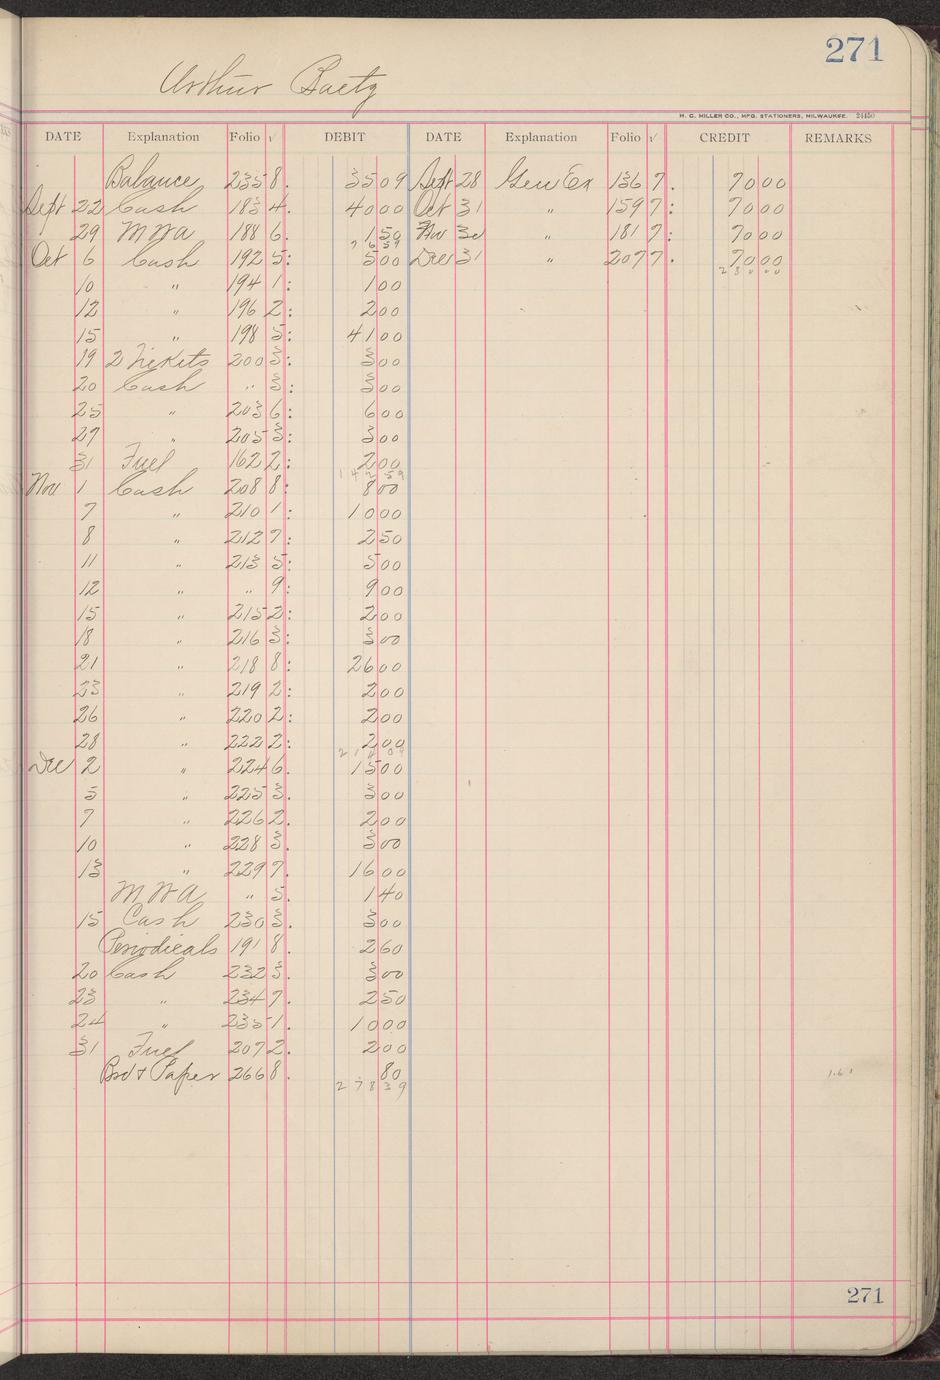 271
Arthur Baetz
H. C. MILLER CO., MFG. STATIONERS, MILWAUKEE. 24450
DATE Explanation Folio √ DEBIT DATE Explanation Folio √ CREDIT REMARKS
Balance 235 8. 35 09 Sept 28 Gen Ex 136 7. 70 00
Sept 22 Cash 183 4. 40 00 Oct 31 " 159 7: 70 00
29 MWA 188 6. 1 50 Nov 30 " 181 7: 70 00
76 59
Oct 6 Cash 192 5: 5 00 Dec 31 " 207 7. 70 00
280 00
10 " 194 1: 1 00
12 " 196 2: 2 00
15 " 198 5: 41 00
19 2 Tickets 200 3: 3 00
20 Cash " 3: 3 00
25 " 203 6: 6 00
27 " 205 3: 3 00
31 Fuel 162 2: 2 00
142 59
Nov 1 Cash 208 8: 8 00
7 " 210 1: 10 00
8 " 212 7: 2 50
11 " 213 5: 5 00
12 " " 9: 9 00
15 " 215 2: 2 00
18 " 216 3: 3 00
21 " 218 8: 26 00
23 " 219 2: 2 00
26 " 220 2: 2 00
28 " 222 2: 2 00
214 09
Dec 2 " 224 6. 15 00
5 " 225 3. 3 00
7 " 226 2. 2 00
10 " 228 3. 3 00
13 " 229 7. 16 00
MWA " 5. 1 40
15 Cash 230 3. 3 00
Periodicals 191 8. 2 60
20 Cash 232 3. 3 00
23 " 234 7. 2 50
24 " 235 1. 10 00
31 Fuel 207 2. 2 00
Brd & Paper 266 8. 80
278 39
1.61
271